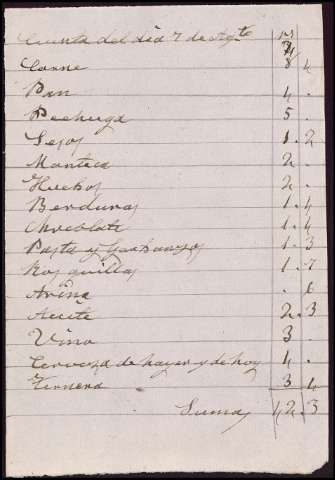 Cuenta del dia 7 de Agto
Carne 8 4
Pan 4 .
Pechuga 5 .
Sesos 1 . 2
Manteca 2 .
Huebos 2 .
Berduras 1 . 4
Chocolate 1 . 4
Pasta y Garbanzos 1 . 3
Rosquillas 1 . 7
Arina . 6
Aceite 2 . 3
Vino 3 .
Cerveza de hayer y de hoy 4 .
Ternera 3 4
Suma 42 . 3